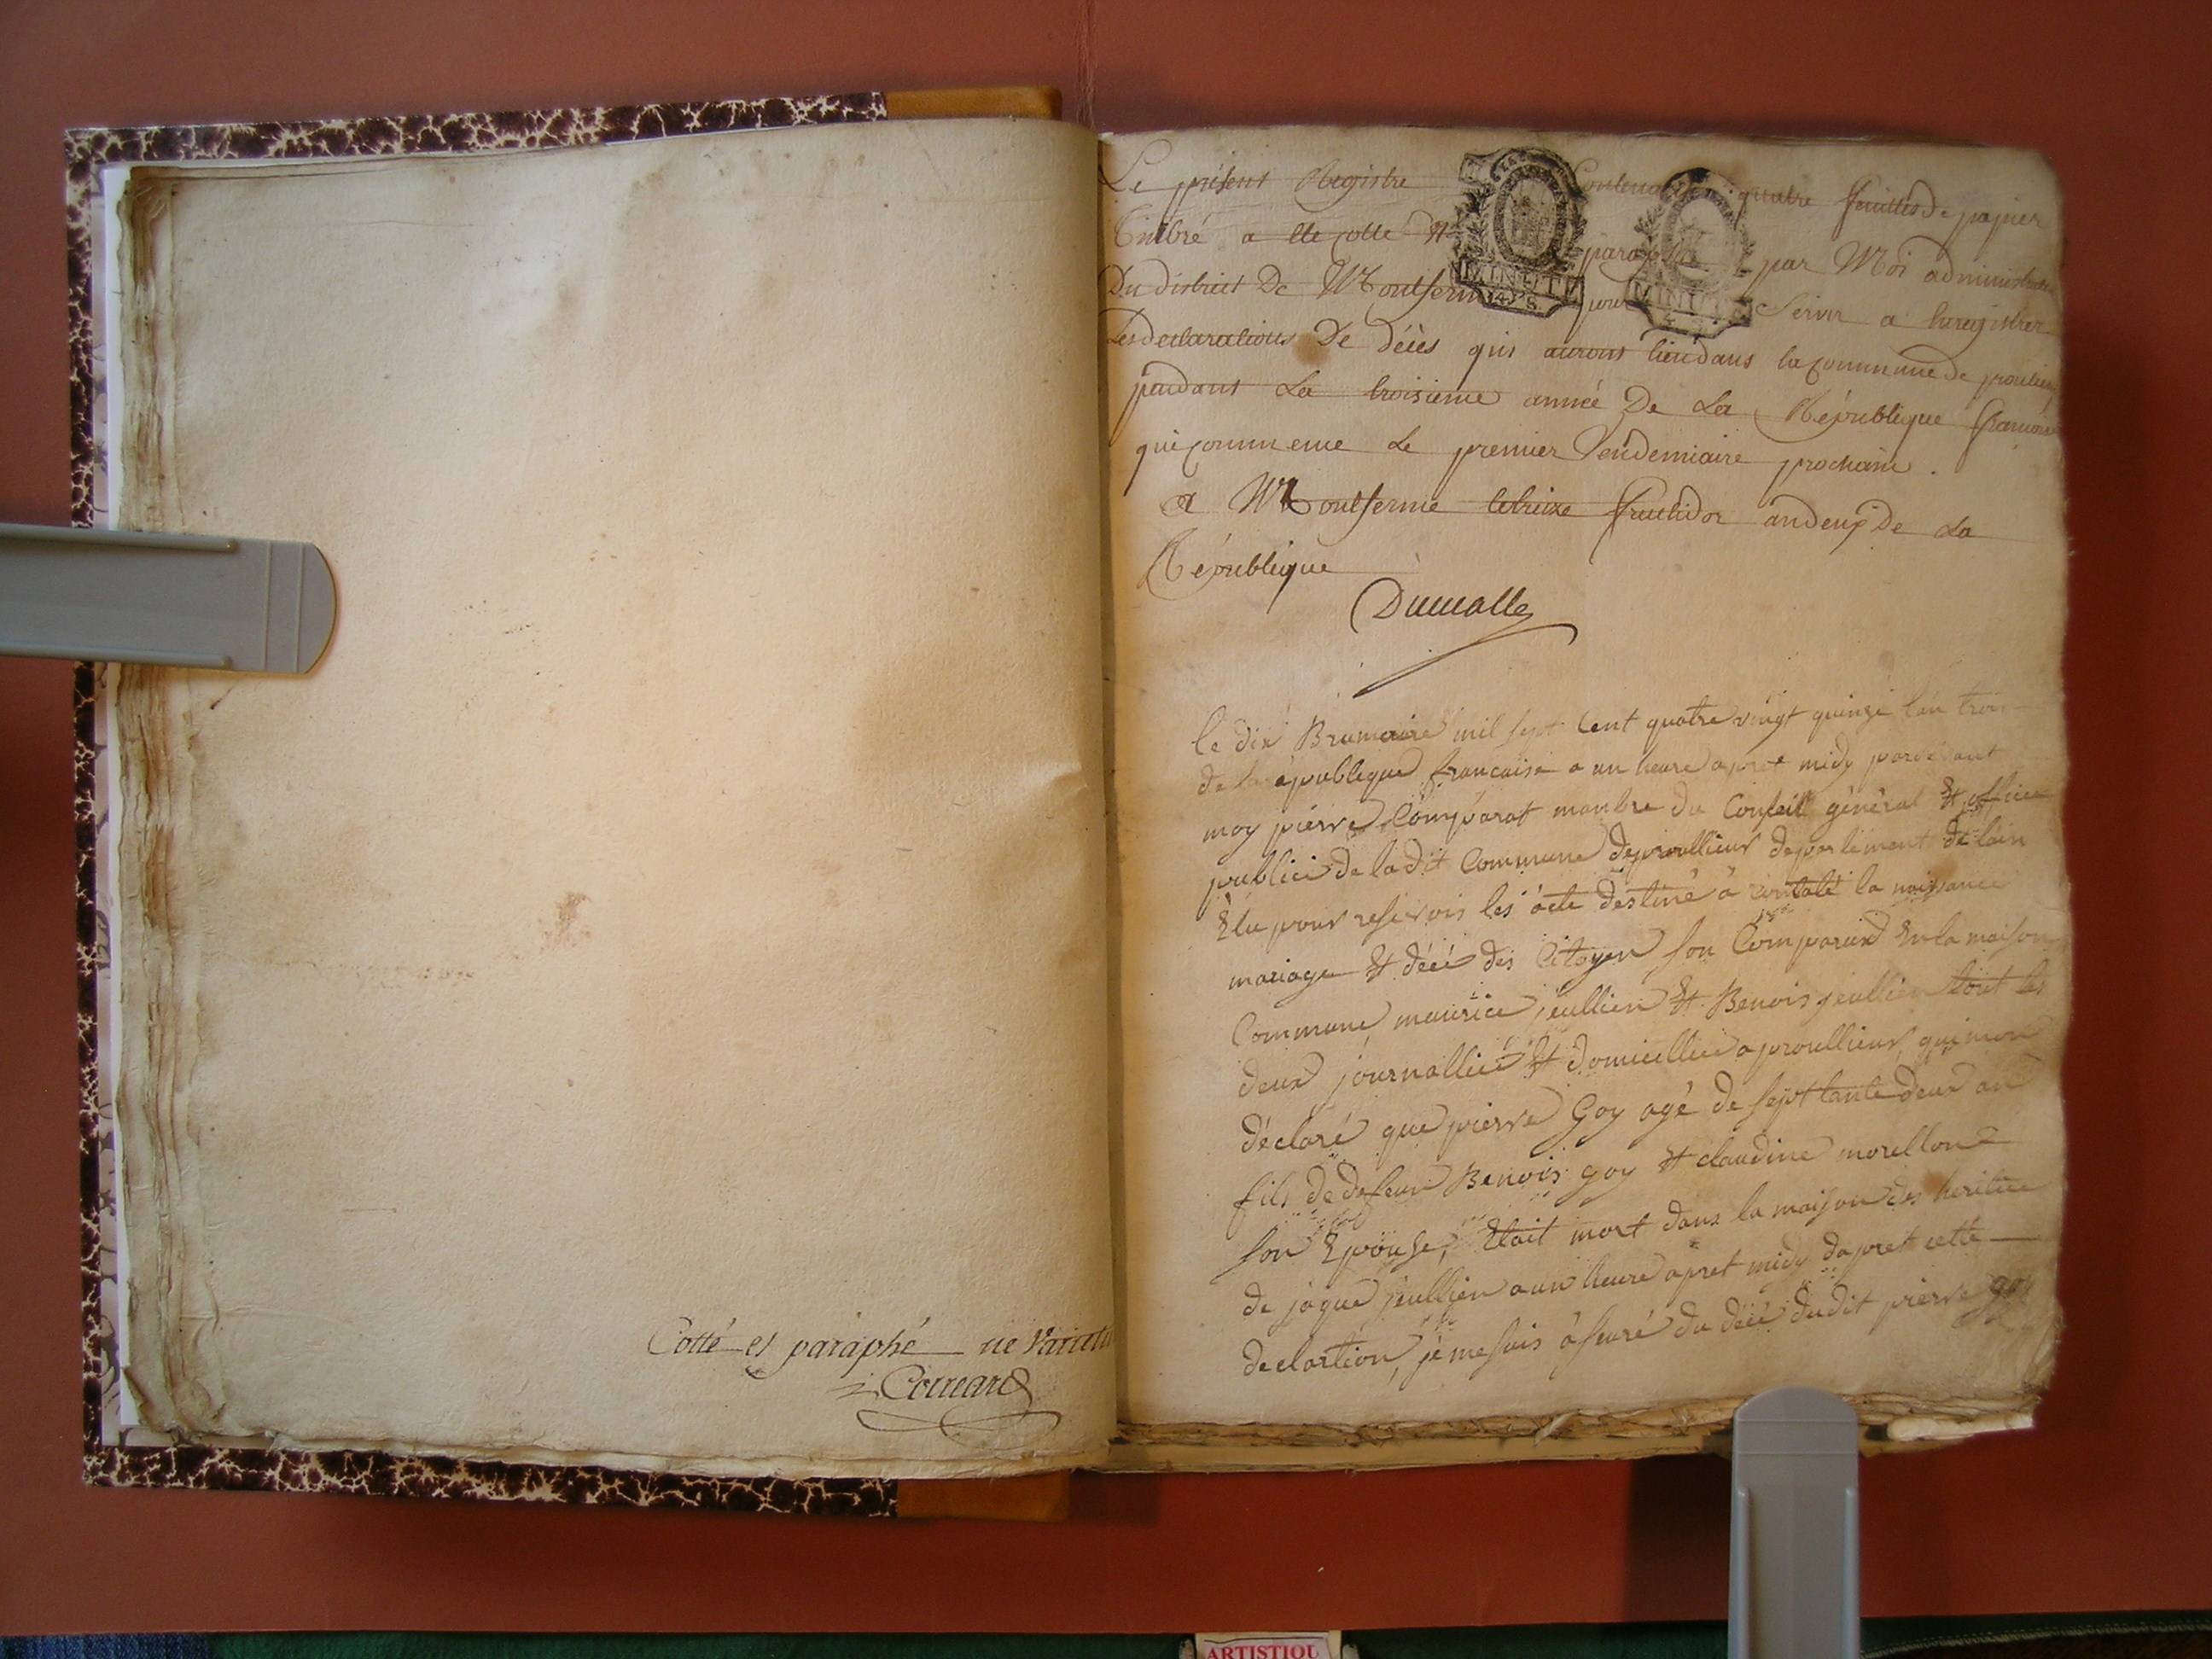 Cotté et paraphé ne Varietur
Le présent Registre Contenant quatre feuilles de papier
Timbré a été cotté et paraphé par Moi administrateur
Du district De Montferme pour Servir a Enregistrer
Les declarations De décès qui auront lieu dans la commune de proulieu
pendant La troisieme année De La République francoise
qui commence Le premier Vendemiaire prochain.
a Montferme le treize fructidor an deux De La
République
MINUTE
4 S.
MINUTE
le dix Brumaire mil sept Cent quatre vingt quinze l'an trois
de la republique francaise a un heure apret midy pardevant
moy pierre Comparat manbre du Conseil général et officié
publici de la dit Commune deproullieux departement de lain
Elu pour reservois les acte destiné a contaté la naissance
mariage et décé des Citoyen son Comparus En la maison
Commune maurice jeullien et Benois jeullien tout les
deux journallié et domicillié a proullieux qui mon
déclaré que pierre Goy agé de septtante deux an
fils de defeun Benois goy et claudine morellon
son Epouse, Etait mort dans la maison des heritié
de jaque jeullien a un heure apret midy dapret cette
declartion, je me suis aseuré du décé dudit pierre goy